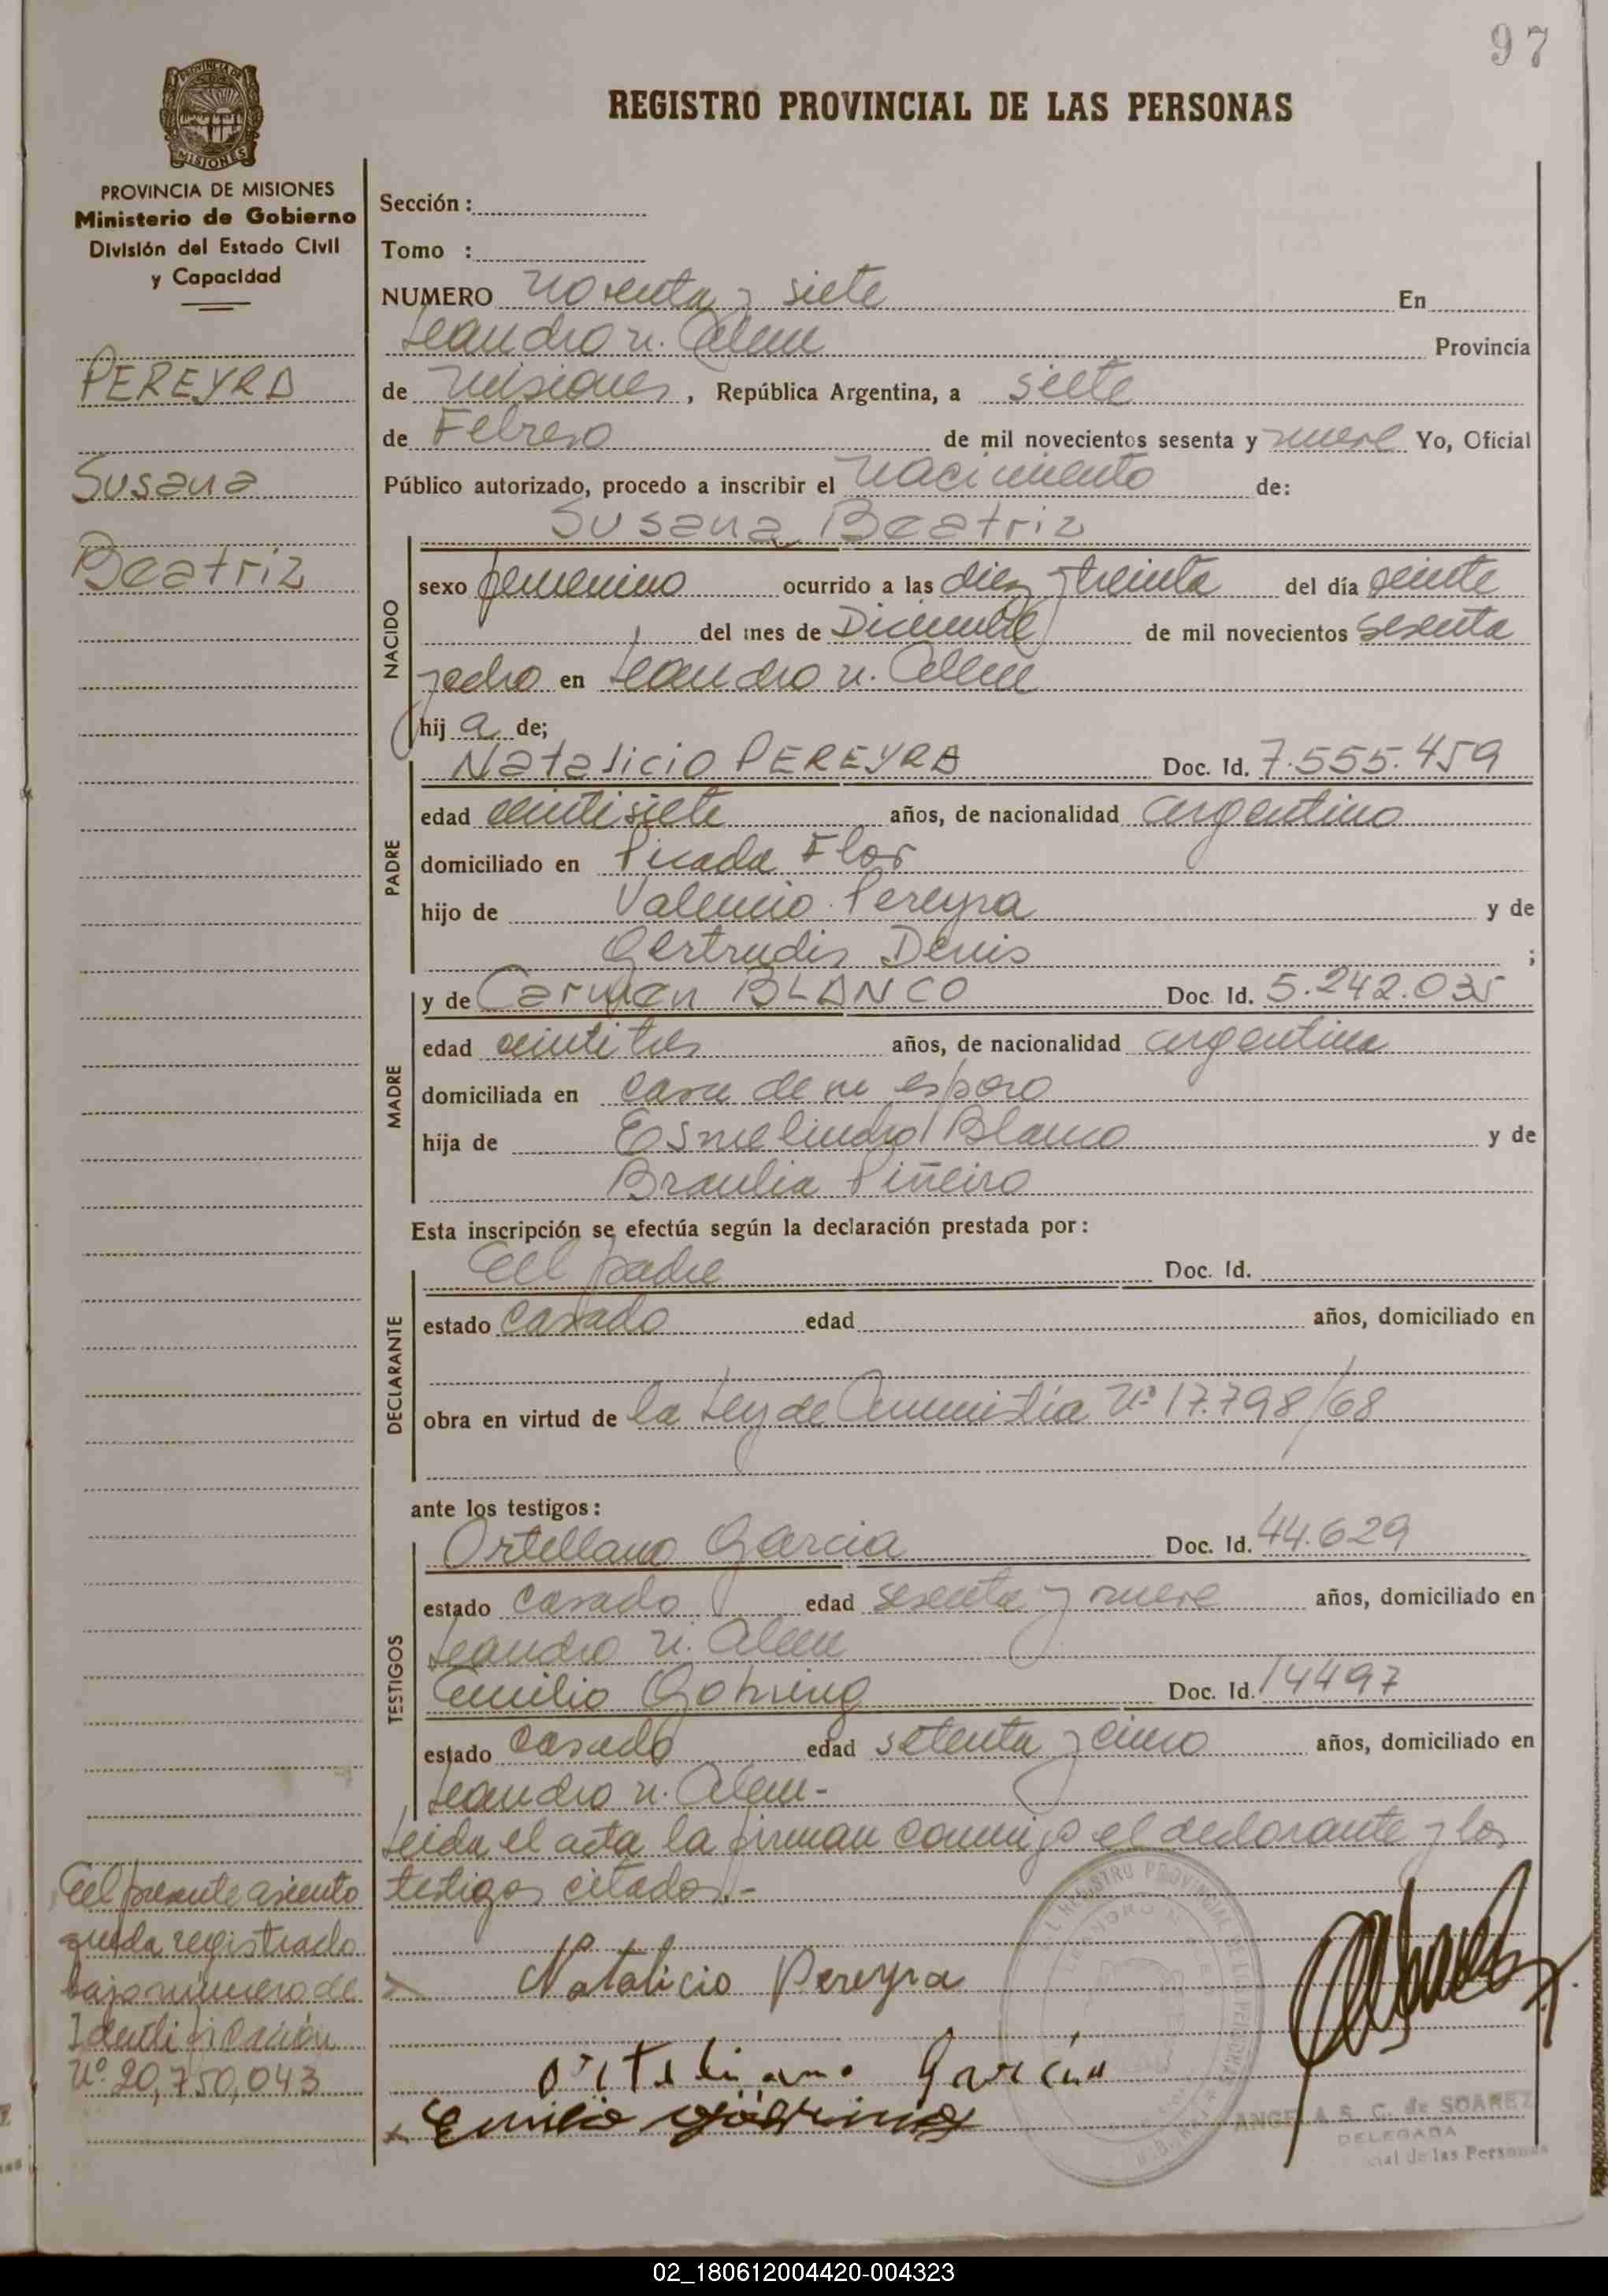 97
REGISTRO PROVINCIAL DE LAS PERSONAS
PROVINCIA DE MISIONES
MISIONES
PROVINCIA DE MISIONES
Ministerio de Gobierno
División del Estado Civil
y Capacidad
PEREYRA
Susana
Beatriz
Sección :
Tomo :
NUMERO noventa y siete En
Leandro n. Alem Provincia
de Misiones, República Argentina, a siete
de Febrero de mil novecientos sesenta y nueve Yo, Oficial
Público autorizado, procedo a inscribir el nacimiento de:
NACIDO
Susana Beatriz
sexo femenino ocurrido a las diez y treinta del día veinte
del mes de Diciembre de mil novecientos sesenta
y ocho en Leandro n. Alem
hij a de;
PADRE
Natalicio PEREYRA Doc. Id. 7.555.459
edad veintisiete años, de nacionalidad argentino
domiciliado en Picada Flor
hijo de Valencio Pereyra y de
Gertrudis Denis ;
MADRE
y de Carmen BLANCO Doc. Id. 5.242.035
edad veintitres años, de nacionalidad argentina
domiciliada en casa de su esposo
hija de Esmelindro Blanco y de
Braulia Piñeiro
Esta inscripción se efectúa según la declaración prestada por:
DECLARANTE
El padre Doc. Id.
estado casado edad años, domiciliado en
obra en virtud de la Ley de Amnistía Nº 17.798/68
ante los testigos:
TESTIGOS
Ortellano Garcia Doc. Id. 44.629
estado casado edad sesenta y nueve años, domiciliado en
Leandro n. Alem
Emilio Gohring Doc. Id. 14497
estado casado edad setenta y cinco años, domiciliado en
Leandro n. Alem-
Leida el acta la firman conmigo el declarante y los
testigos citados.-
El presente asiento
queda registrado
bajo numero de
Identificación
Nº 20,750,043
Natalicio Pereyra
Ortellano Garcia
Emilio Göhring
REGISTRO PROVINCIAL DE LAS PERSONAS
ANGELA S. C. de SOAREZ
DELEGADA
cial de las Personas
02_180612004420-004323